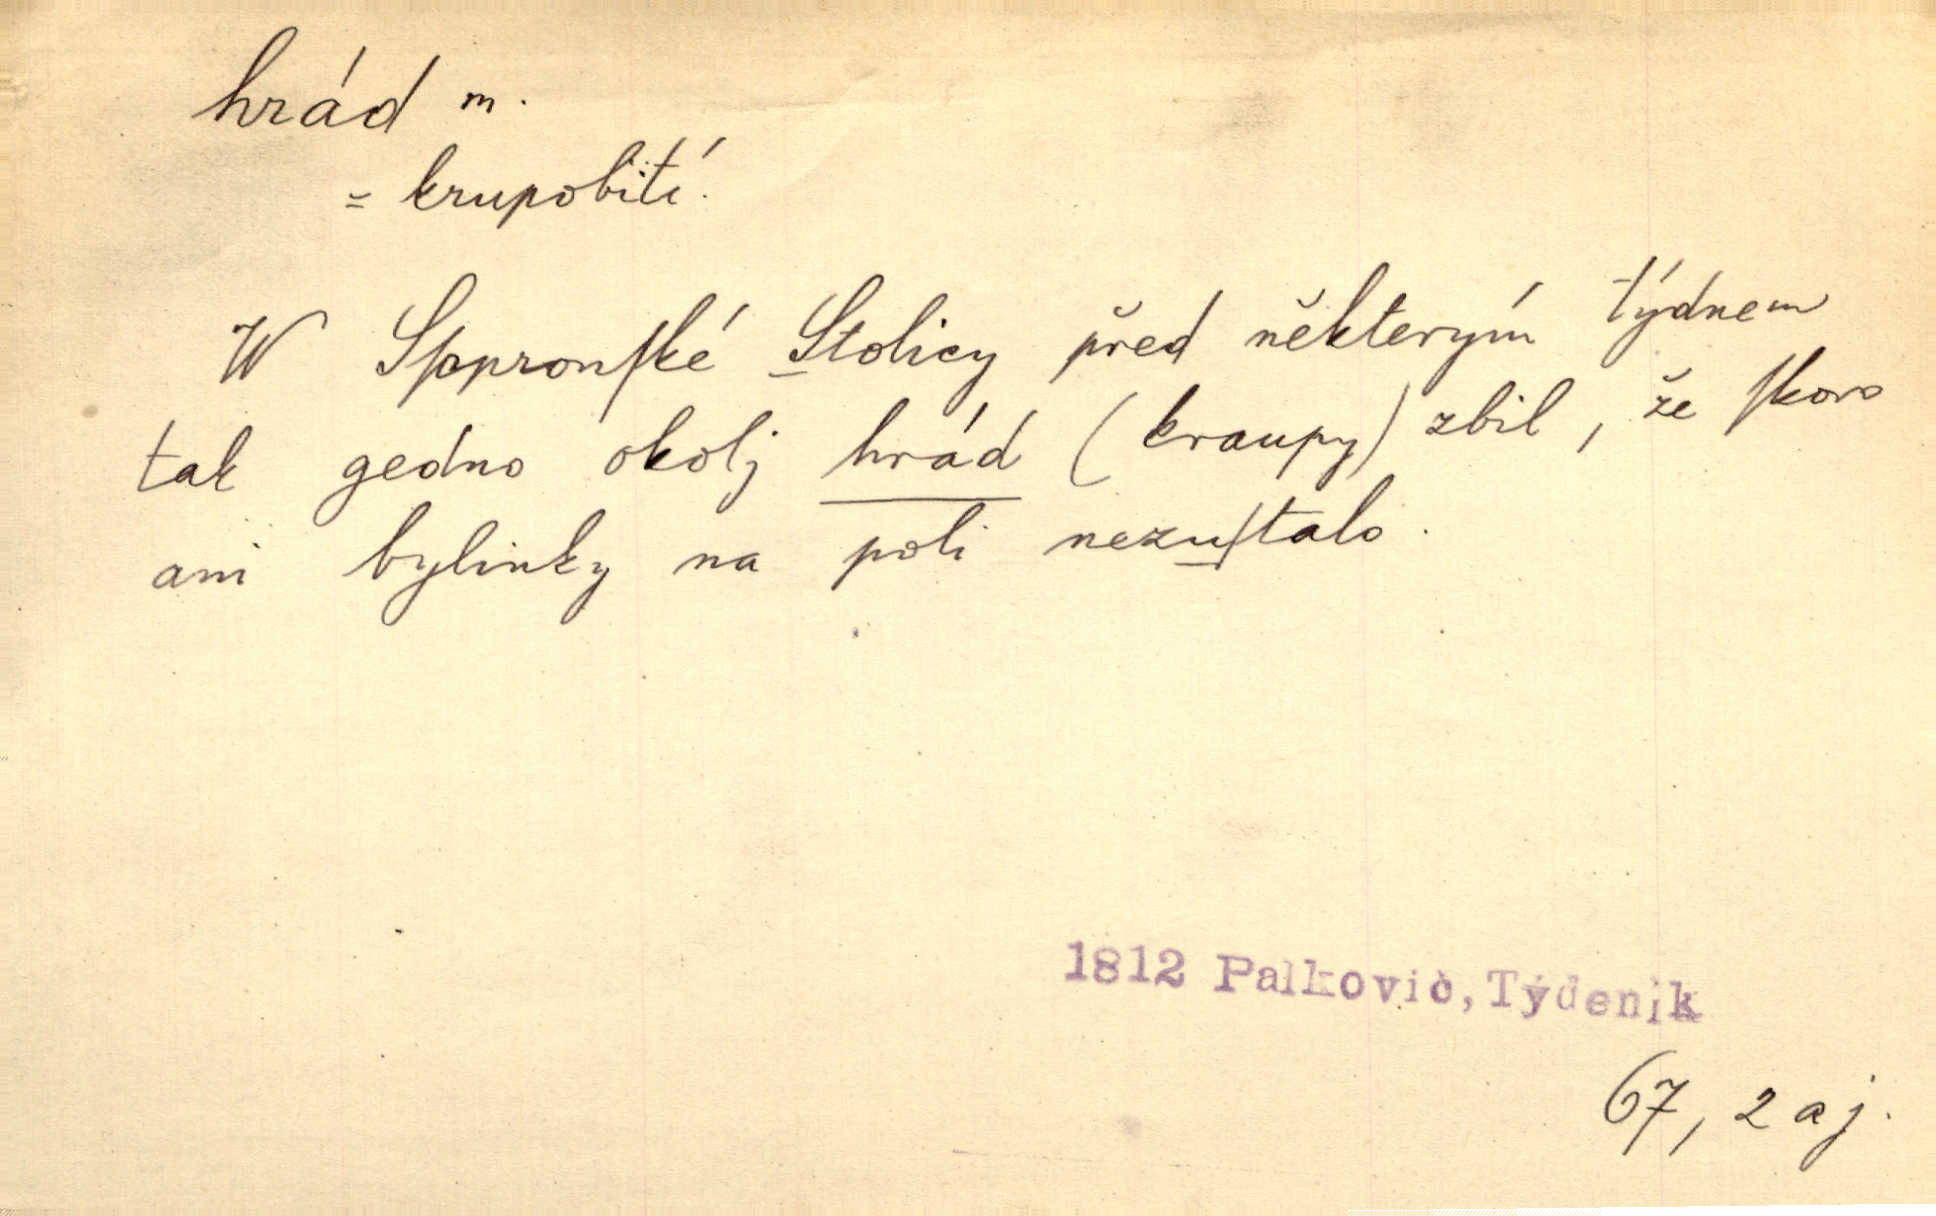 hrád m.
= krupobití.
W Ssopronſké Stolicy před některým týdnem
tak gedno okolj hrád (kraupy) zbil, že ſkoro
ani bylinky na poli nezuſtalo.
1812 Palkovič, Týdeník
67, 2 aj.